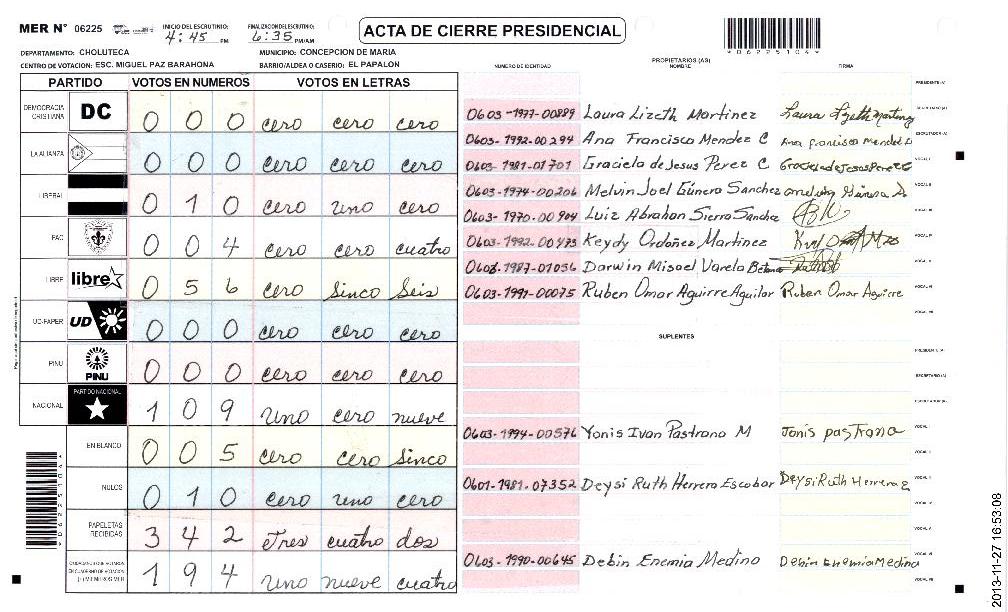 MER N° 06225
INICIO DEL ESCRUTINIO: 4:45 PM
FINALIZACION DEL ESCRUTINIO: 6:35 PM/AM
ACTA DE CIERRE PRESIDENCIAL
06225104
DEPARTAMENTO: CHOLUTECA
MUNICIPIO: CONCEPCION DE MARIA
CENTRO DE VOTACION: ESC. MIGUEL PAZ BARAHONA
BARRIO/ALDEA O CASERIO: EL PAPALON
PARTIDO VOTOS EN NUMEROS VOTOS EN LETRAS
DEMOCRACIA CRISTIANA DC 0 0 0 cero cero cero
LA ALIANZA 0 0 0 cero cero cero
LIBERAL 0 1 0 cero uno cero
PAC 0 0 4 cero cero cuatro
LIBRE libre 0 5 6 cero Sinco Seis
UD-FAPER UD 0 0 0 cero cero cero
PINU PINU 0 0 0 cero cero cero
NACIONAL PARTIDO NACIONAL 1 0 9 uno cero nueve
EN BLANCO 0 0 5 cero cero Sinco
NULOS 0 1 0 cero uno cero
PAPELETAS RECIBIDAS 3 4 2 Tres cuatro dos
1 9 4 uno nueve cuatro
NUMERO DE IDENTIDAD PROPIETARIOS (AS) NOMBRE FIRMA
PRESIDENTE (A)
0603-1977-00899 Laura Lizeth Martinez Laura Lizeth Martinez SECRETARIO (A)
0603-1992-00294 Ana Francisca Mendez C Ana francisca Mendez ESCRUTADOR (A)
0603-1981-01701 Graciela de Jesus Perez C Graciela de Jesus Perez C VOCAL I
0603-1974-00206 Melvin Joel Gúnera Sanchez VOCAL II
0603-1970-00904 Luiz Abrahan Sierra Sanchez VOCAL III
0603-1992-00473 Keydy Ordoñez Martinez VOCAL IV
0603-1987-01056 Darwin Misael Varela VOCAL V
0603-1991-00075 Ruben Omar Aguirre Aguilar Ruben Omar Aguirre VOCAL VI
VOCAL VII
SUPLENTES
PRESIDENTE (A)
SECRETARIO (A)
ESCRUTADOR (A)
0603-1994-00576 Yonis Ivan Pastrana M Jonis pastrana VOCAL I
VOCAL II
0601-1981-07352 Deysi Ruth Herrera Escobar Deysi Ruth Herrera VOCAL III
VOCAL IV
VOCAL V
0603-1990-00645 Debin Enemia Medina Debin Enemia Medina VOCAL VI
VOCAL VII
2013-11-27 16:53:08